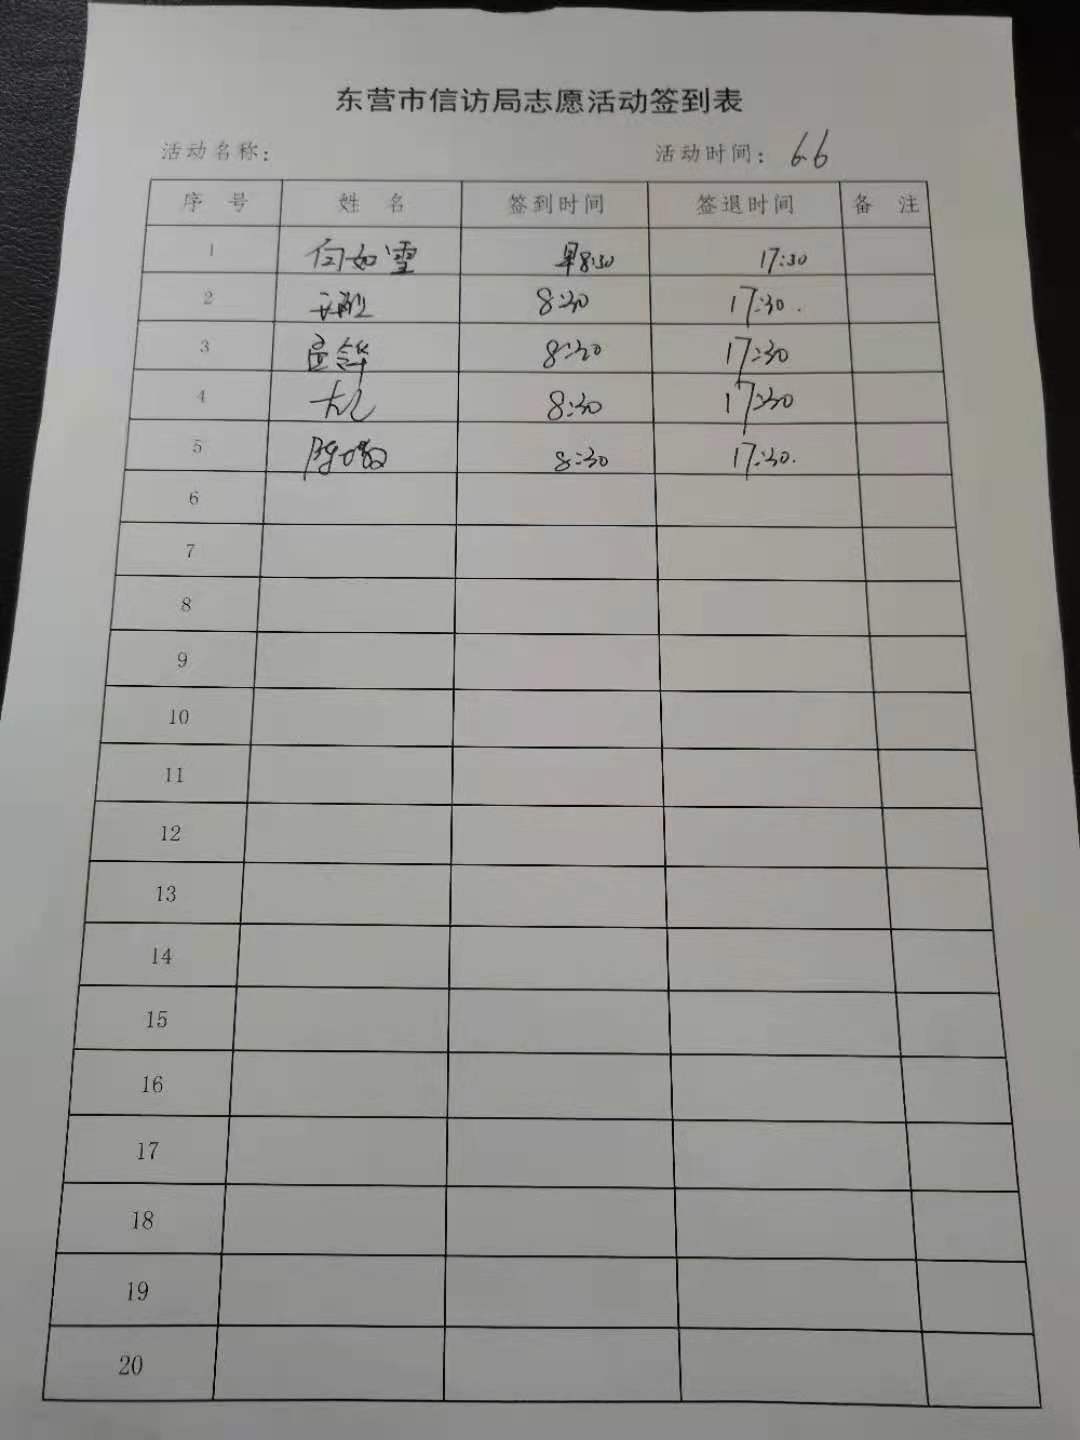 东营市信访局志愿活动签到表
活动名称： 活动时间： 6.6
序 号 姓 名 签到时间 签退时间 备 注
1 闫如雪 早8:30 17:30
2 8:30 17:30.
3 8:30 17:30
4 8:30 17:30
5 8:30 17:30.
6
7
8
9
10
11
12
13
14
15
16
17
18
19
20